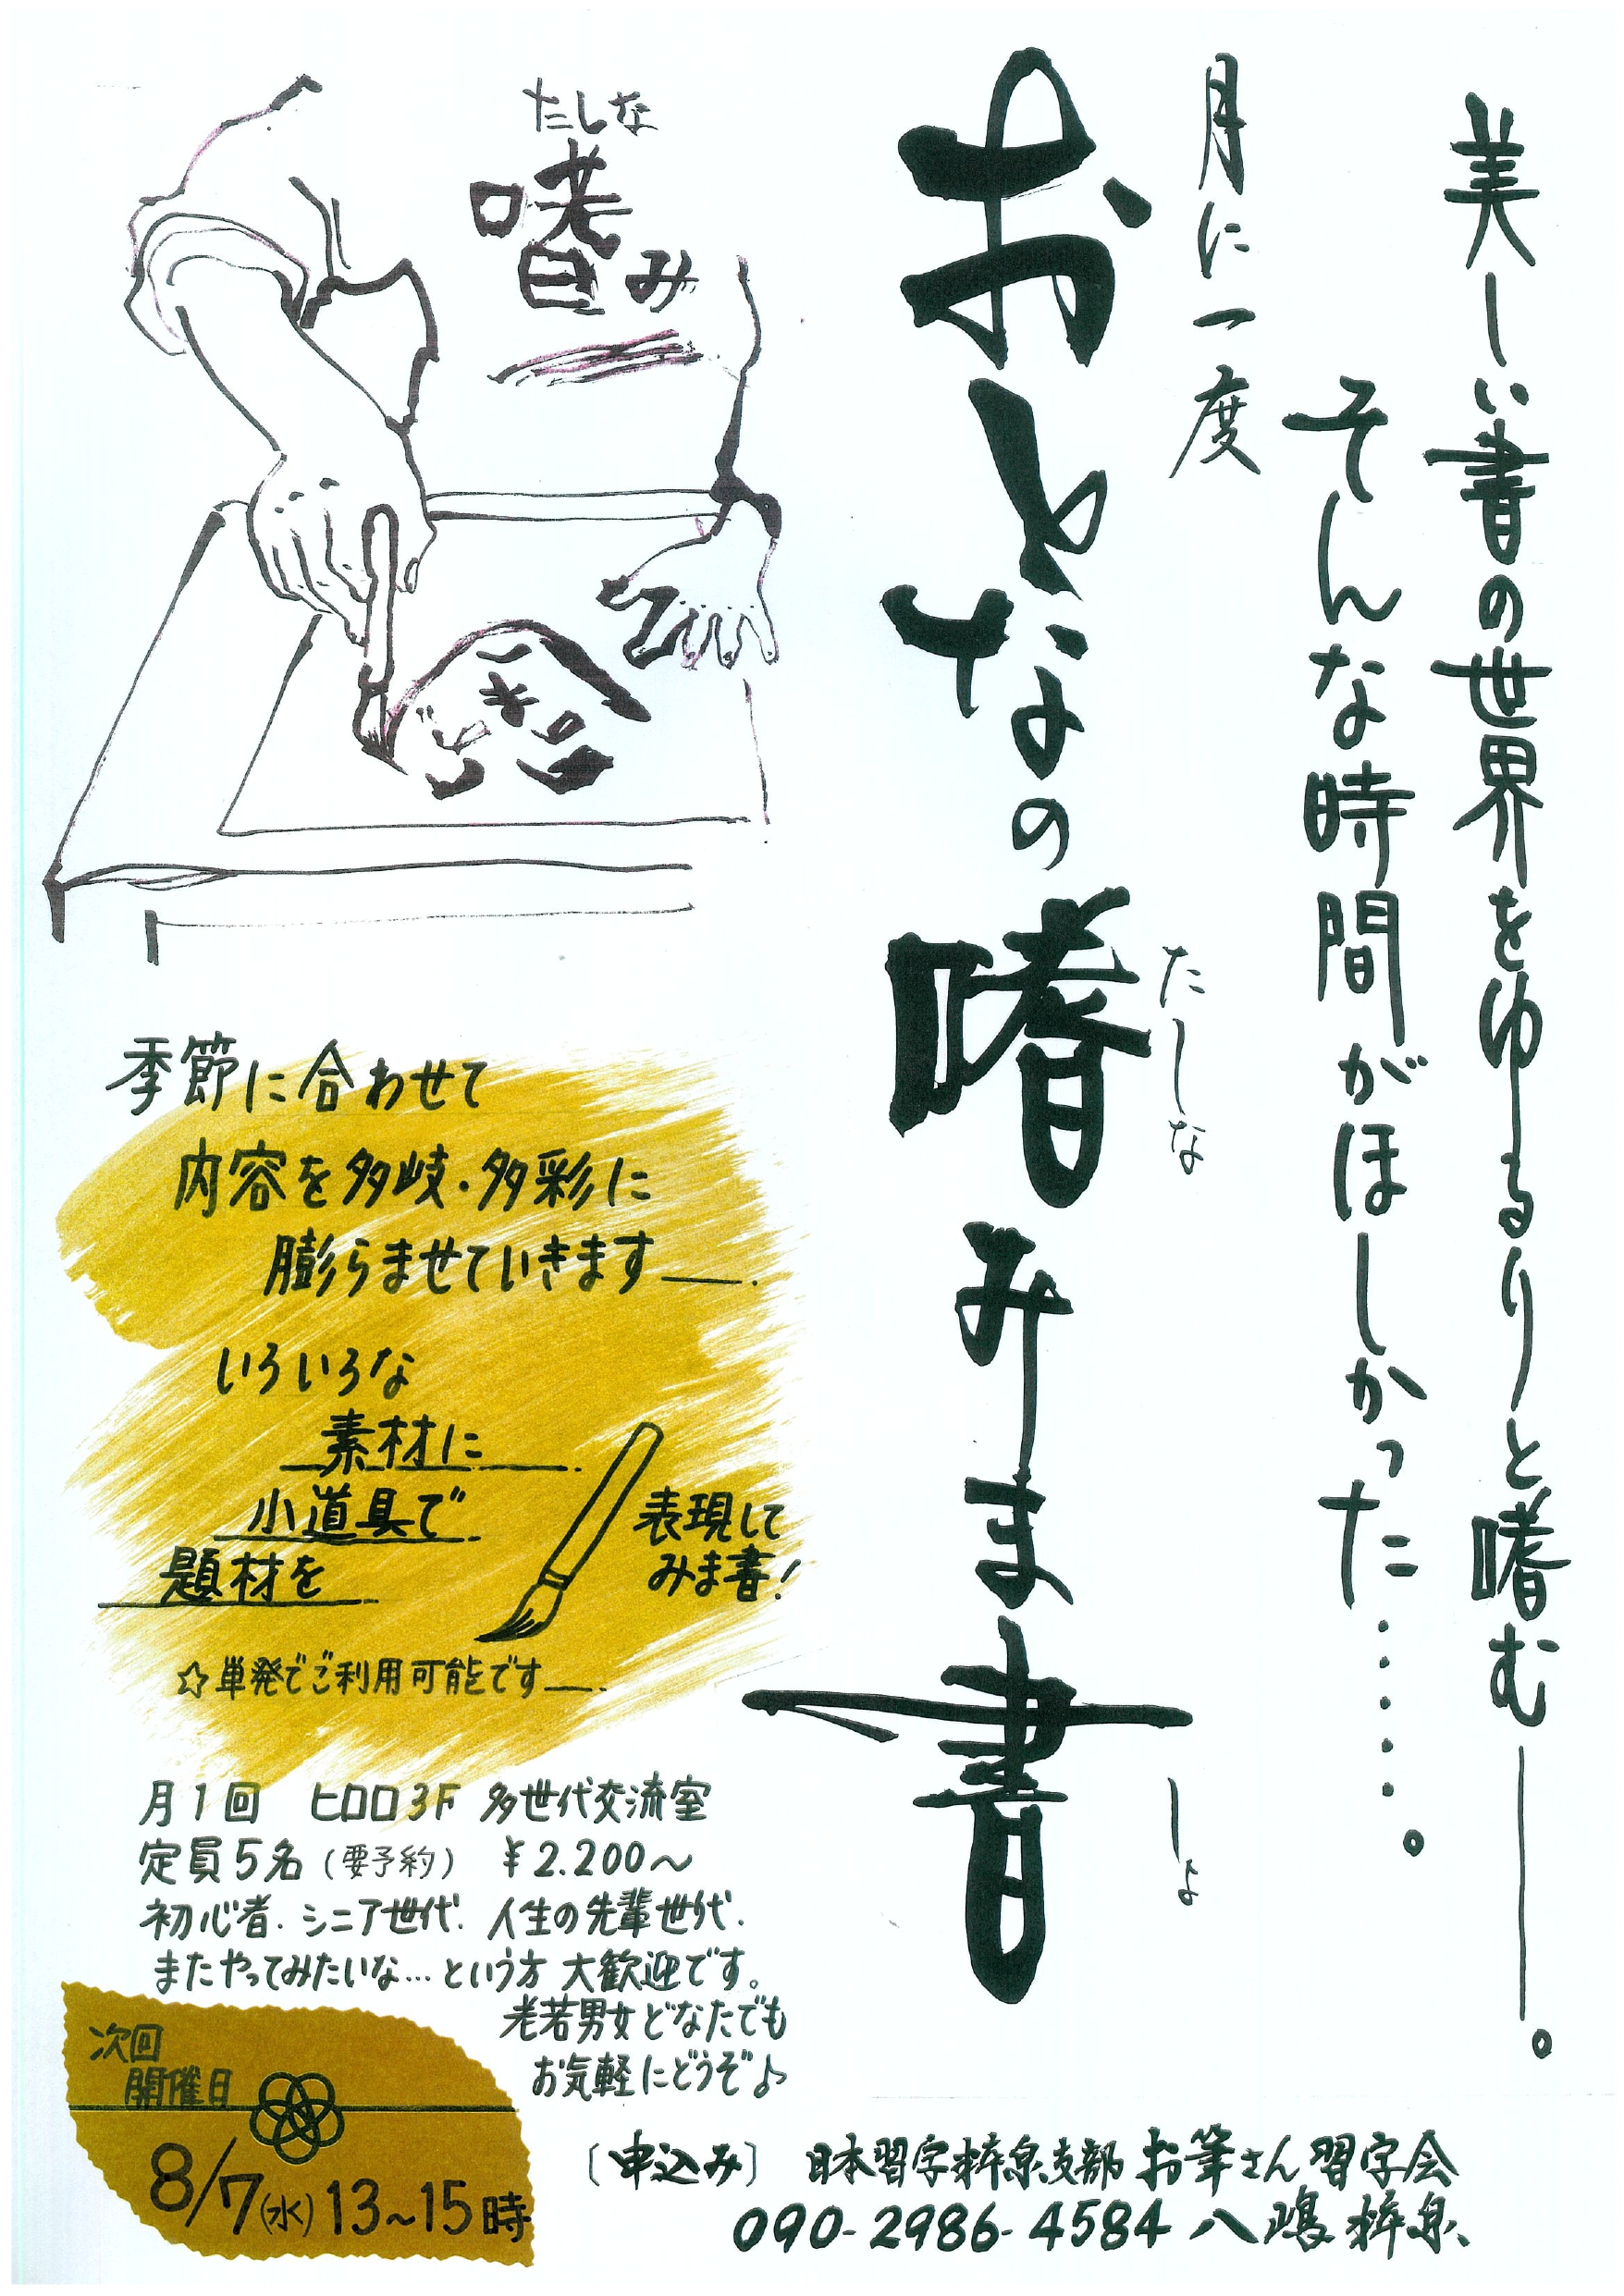 美しい書の世界をゆるりと嗜む―――。
そんな時間がほしかった……。
月に一度
おとなの嗜みま書
たしな
しょ
たしな
嗜み
季節に合わせて
内容を多岐・多彩に
膨らませていきます―.
いろいろな
素材に
小道具で
題材を
表現して
みま書!
☆単発でご利用可能です―.
月1回 ヒロロ3F 多世代交流室
定員5名(要予約) ¥2.200〜
初心者.シニア世代.人生の先輩世代.
またやってみたいな…という方 大歓迎です。
老若男女どなたでも
お気軽にどうぞ♪
次回
開催日
8/7(水)13~15時
〔申込み〕 日本習字梓泉支部 お筆さん習字会
090-2986-4584 八嶋梓泉